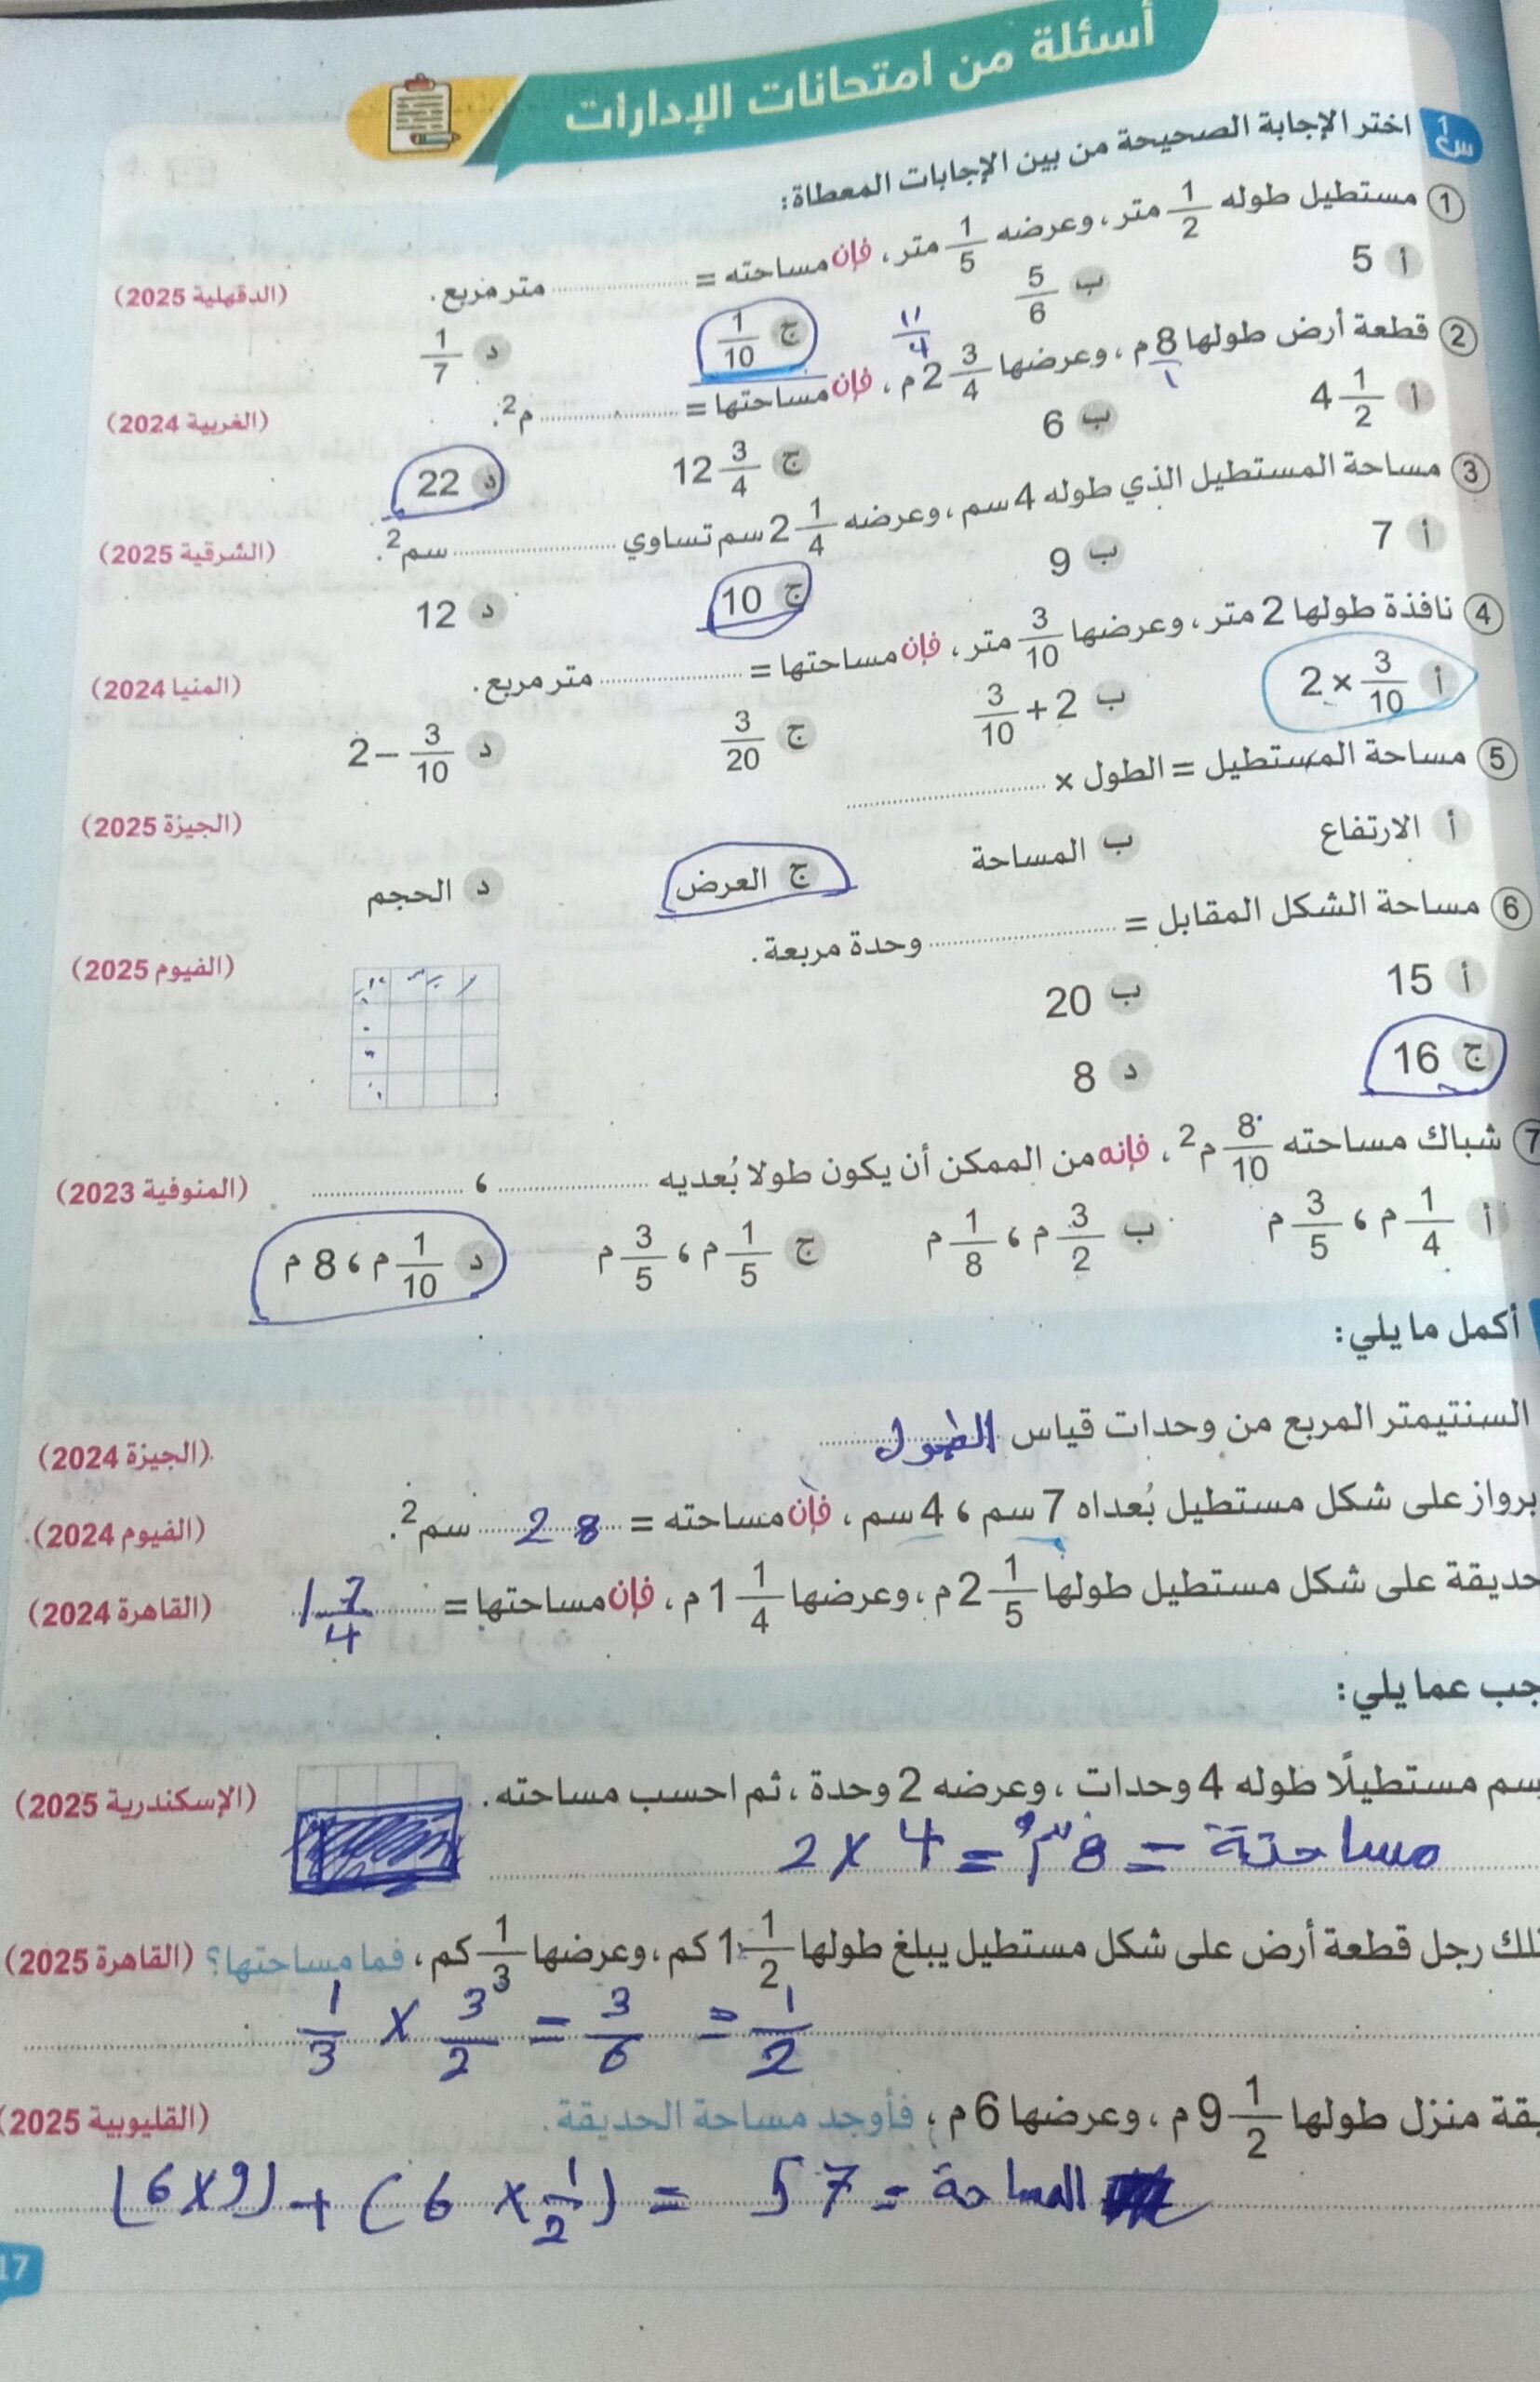 أسئلة من امتحانات الإدارات
س1 اختر الإجابة الصحيحة من بين الإجابات المعطاة:
1 مستطيل طوله 1/2 متر، وعرضه 1/5 متر، فإن مساحته = .......... متر مربع. (الدقهلية 2025)
أ 5 ب 5/6 ج 1/10 د 1/7
11/4
2 قطعة أرض طولها 8 م، وعرضها 2 3/4 م، فإن مساحتها = .......... م². (الغربية 2024)
1
أ 4 1/2 ب 6 ج 12 3/4 د 22
3 مساحة المستطيل الذي طوله 4 سم، وعرضه 2 1/4 سم تساوي .......... سم². (الشرقية 2025)
أ 7 ب 9 ج 10 د 12
4 نافذة طولها 2 متر، وعرضها 3/10 متر، فإن مساحتها = .......... متر مربع. (المنيا 2024)
أ 2 × 3/10 ب 3/10 + 2 ج 3/20 د 2 − 3/10
5 مساحة المستطيل = الطول × .......... (الجيزة 2025)
أ الارتفاع ب المساحة ج العرض د الحجم
6 مساحة الشكل المقابل = .......... وحدة مربعة. (الفيوم 2025)
أ 15 ب 20
ج 16 د 8
7 شباك مساحته 8/10 م²، فإنه من الممكن أن يكون طولا بُعديه .......... ، .......... (المنوفية 2023)
أ 1/4 م ، 3/5 م ب 3/2 م ، 1/8 م ج 1/5 م ، 3/5 م د 1/10 م ، 8 م
أكمل ما يلي:
السنتيمتر المربع من وحدات قياس الطول (الجيزة 2024).
برواز على شكل مستطيل بُعداه 7 سم ، 4 سم، فإن مساحته = 28 سم². (الفيوم 2024).
حديقة على شكل مستطيل طولها 2 1/5 م، وعرضها 1 1/4 م، فإن مساحتها = 1 7/4 (القاهرة 2024)
جب عما يلي:
سم مستطيلًا طوله 4 وحدات، وعرضه 2 وحدة، ثم احسب مساحته. (الإسكندرية 2025)
مساحتة = 8 م² = 4 × 2
تلك رجل قطعة أرض على شكل مستطيل يبلغ طولها 1 1/2 كم، وعرضها 1/3 كم، فما مساحتها؟ (القاهرة 2025)
1/3 × 3/2 = 3/6 = 1/2
يقة منزل طولها 9 1/2 م، وعرضها 6 م، فأوجد مساحة الحديقة. (القليوبية 2025)
المساحة = 57 = (6 × 1/2) + (6 × 9)
17